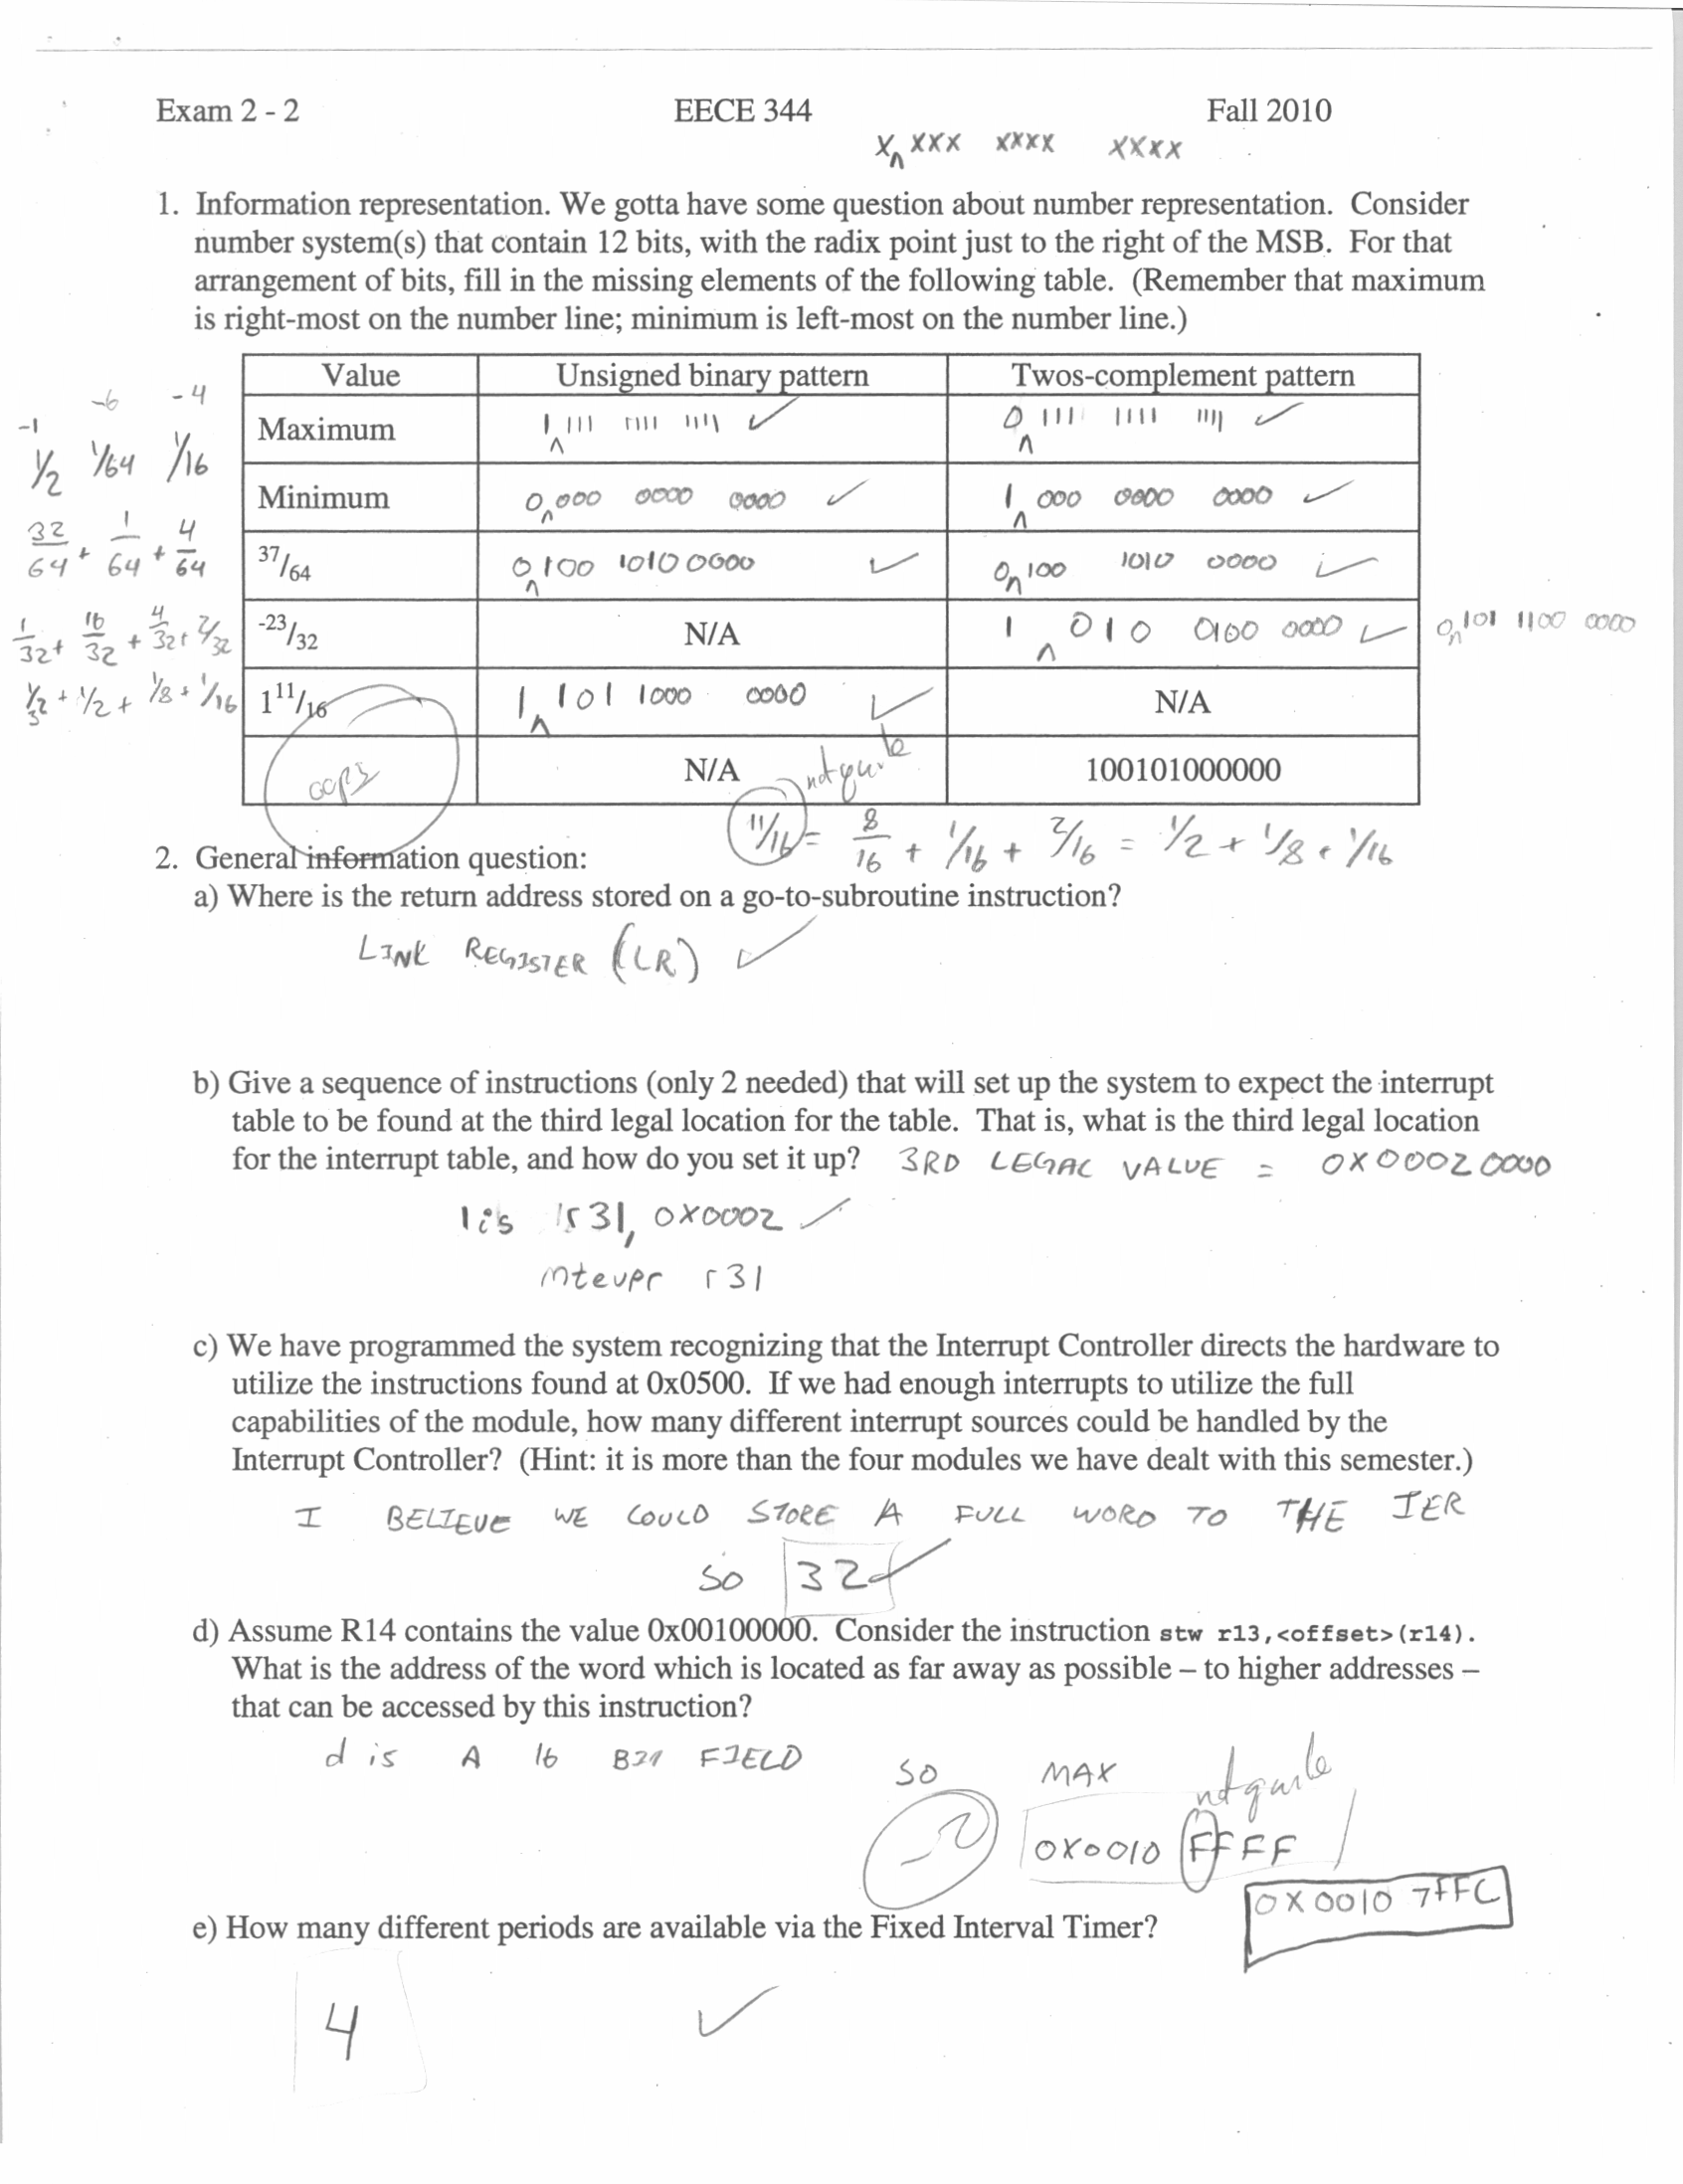 Exam 2 - 2 EECE 344 Fall 2010
X^XXX XXXX XXXX
1. Information representation. We gotta have some question about number representation. Consider
number system(s) that contain 12 bits, with the radix point just to the right of the MSB. For that
arrangement of bits, fill in the missing elements of the following table. (Remember that maximum
is right-most on the number line; minimum is left-most on the number line.)
Value Unsigned binary pattern Twos-complement pattern
-1 -6 -4
1/2 1/64 1/16
Maximum 1^111 1111 1111 ✓ 0^111 1111 1111 ✓
Minimum 0^000 0000 0000 ✓ 1^000 0000 0000 ✓
32/64 + 1/64 + 4/64
37/64 0^100 1010 0000 ✓ 0^100 1010 0000 ✓
1/32 + 16/32 + 4/32 + 2/32
-23/32 N/A 1^010 0100 0000 ✓ 0^101 1100 0000
1/32 + 1/2 + 1/8 + 1/16
1 11/16 1^101 1000 0000 ✓ N/A
oops N/A 100101000000
not quite
11/16 = 8/16 + 1/16 + 2/16 = 1/2 + 1/8 + 1/16
2. General information question:
a) Where is the return address stored on a go-to-subroutine instruction?
LINK REGISTER (LR) ✓
b) Give a sequence of instructions (only 2 needed) that will set up the system to expect the interrupt
table to be found at the third legal location for the table. That is, what is the third legal location
for the interrupt table, and how do you set it up? 3RD LEGAL VALUE = 0X00020000
lis r31, 0X0002 ✓
mtevpr r31
c) We have programmed the system recognizing that the Interrupt Controller directs the hardware to
utilize the instructions found at 0x0500. If we had enough interrupts to utilize the full
capabilities of the module, how many different interrupt sources could be handled by the
Interrupt Controller? (Hint: it is more than the four modules we have dealt with this semester.)
I BELIEVE WE COULD STORE A FULL WORD TO THE IER
SO 32 ✓
d) Assume R14 contains the value 0x00100000. Consider the instruction stw r13,<offset>(r14).
What is the address of the word which is located as far away as possible – to higher addresses –
that can be accessed by this instruction?
d is A 16 BIT FIELD SO MAX
not quite
-2 0X0010 FFFF
0X0010 7FFC
e) How many different periods are available via the Fixed Interval Timer?
4 ✓